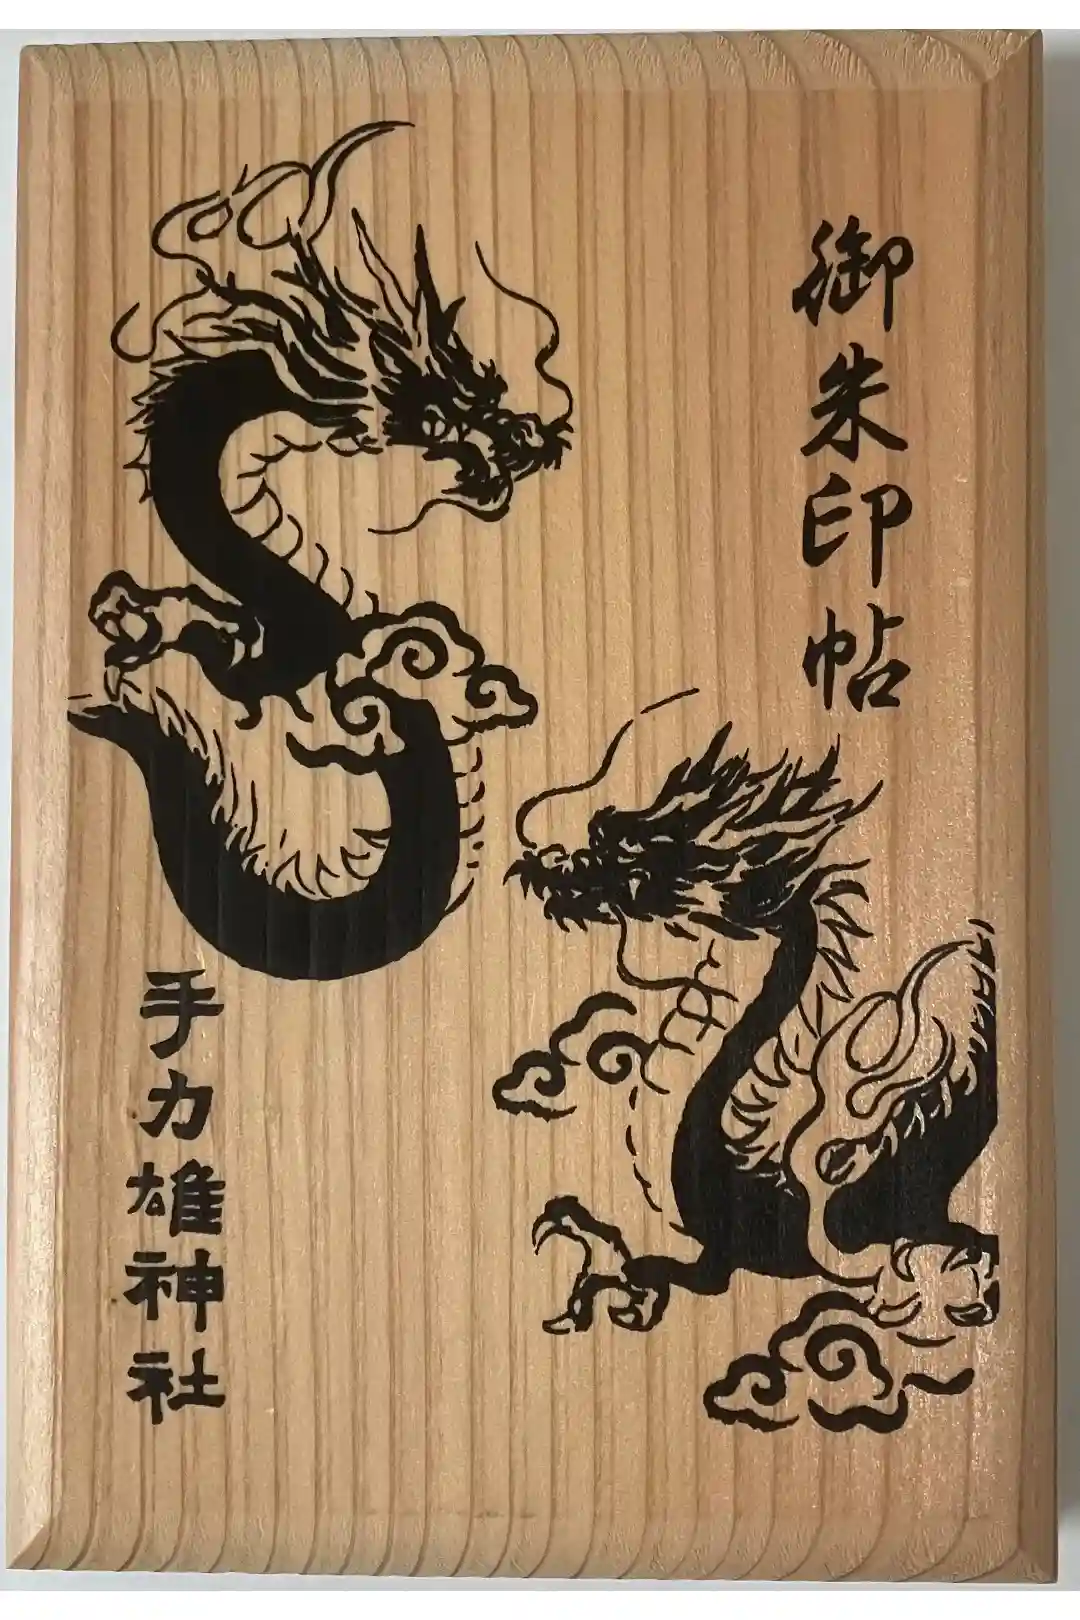 御朱印帖
手力雄神社